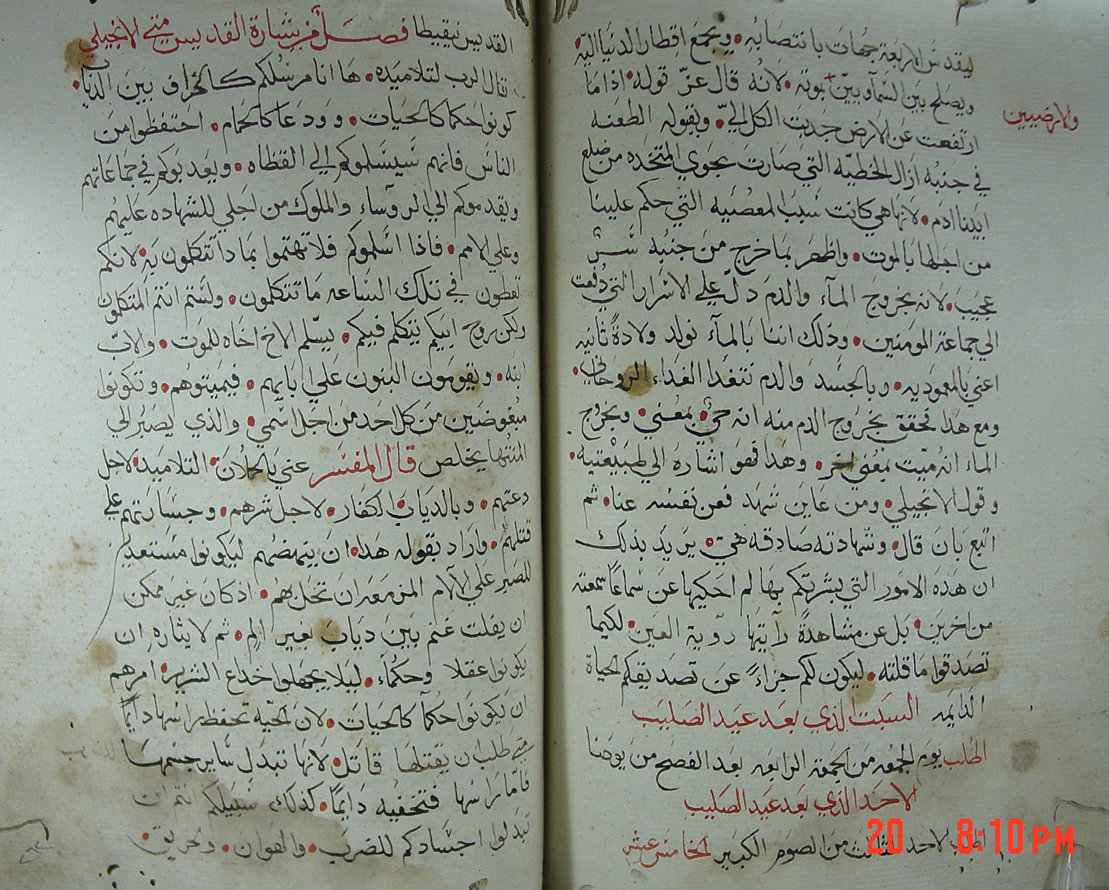 ليقدس الاربعة جهات بانتصابه • ويجمع اقطار الدنيا اليه
ويصلح بين السمآويين بموته • لانه قال عز قوله • اذا ما
والارضيين
ارتفعت عن الارض جدبت الكل اليّ • وبقوله الطعنه
في جنبه ازال الخطيّه التي صارت بحوي المتخده من ضلع
ابينا ادم • لانها هي كانت سبب المعصيه التي حكم علينا
من اجلها بالموت • واظهر بما خرج من جنبه سر
عجيب • لانه بخروج المآء والدم دلّ علي الاسرار التي دُفعت
الي جماعة المومنين • وذلك اننا بالمآء نولد ولادةً ثانيه
اعني بالمعموديه • وبالجسد والدم نتغدا الغداء الروحاني •
ومع هدا تحقق بخروج الدم منه انه حيٌ بمعني • وبخروج
الماء انه ميت بمعني اخر • وهدا فهو اشاره الي طبيعتيه •
وقول الانجيلي • ومن عاين شهد فعن نفسه عنا • ثم
اتبع بان قال • وشهادته صادقه هي • يريد بذلك
ان هده الامور التي بشرتكم بها لم احكيها عن سماعاً سمعته
من اخرين • بل عن مشاهدةً رآيتها روية العين • لكيما
تصدقوا ما قلته • ليكون لكم جزاءً عن تصديقكم الحياة
الدايمه السبت الذي بعد عيد الصليب
اطلب يوم الجمعه من الجمعة الرابعه بعد الفصح من يوحنا
الاحد الذي بعد عيد الصليب
الاحد الثالث من الصوم الكبير الخامس عشر
القديس نيقيطا فصل من بشارة القديس متي الانجيلي
قال الرب لتلاميده • ها انا مرسلكم كالخراف بين الدياب •
كونوا حكما كالحيات • وودعا كالحمام • احتفظوا من
الناس فانهم سيسلموكم الي القظاه • ويعدبوكم في جماعاتهم
ويقدموكم الي الروساء والملوك من اجلي للشهاده عليهم
وعلي الامم • فاذا اسلموكم فلا تهتموا بما دا تتكلمون به • لانكم
تعطون في تلك الساعه ما تتكلمون • ولستم انتم المتكلمون
ولكن روح ابيكم يتكلم فيكم • يسلم الاخ اخاه للموت • والاب
ابنه • ويقومون البنون علي ابايهم • فيميتوهم • وتكونوا
مبغوضين من كل احد من اجل اسمي • والذي يصبر الي
المنتها يخلص قال المفسر عني بالحملان • التلاميد • لاجل
دعتهم • وبالدياب • الكفار • لاجل شرهم • وجسارتهم علي
قتلهم • واراد بقوله هدا • ان ينهضهم ليكونوا مستعدين
للصبر علي الالام المزمعه ان تحل بهم • اذ كان غير ممكن
ان يفلت غنم بين دياب بغير الم • ثم لايثاره ان
يكونوا عقلا وحكمآء • ليلا يجهلوا خداع الشرير • امرهم
ان يكونوا حكمآ كالحيات • لان الحيّه تحفظ راسها دايماً
متي طلب ان يقتلها قاتل • لانها تبدل ساير جسمها
فاما راسها فتخفيه دايماً • كذلك سبيلكم انتم ان
تبدلوا اجسادكم للضرب • والهوان • والحريق •
20 8:10 PM